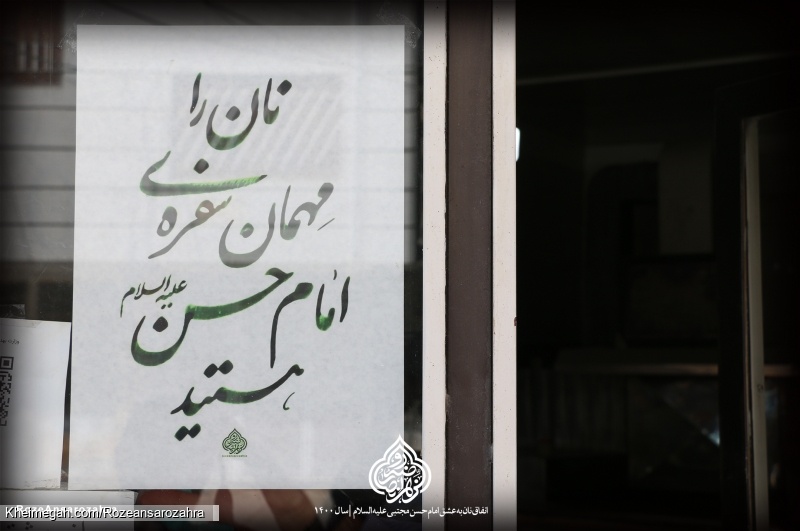 نان را
مهمان سفره‌ی
امام حسن علیه السلام
هستید
انفاق نان به عشق امام حسن مجتبی علیه السلام | سال ۱۴۰۰
Kheimegan.com/Rozeansarozahra